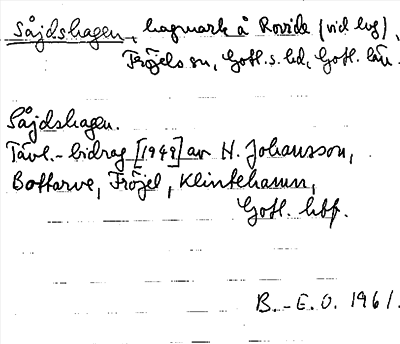 Såjdshagen, hagmark å Rovide (vid lvg),
Fröjels sn, Gotl. s. hd, Gotl. län.
Såjdshagen.
Tävl.-bidrag [1948] av H. Johansson,
Bottarve, Fröjel, Klintehamn,
Gotl. hbf.
B.-E.O. 1961.